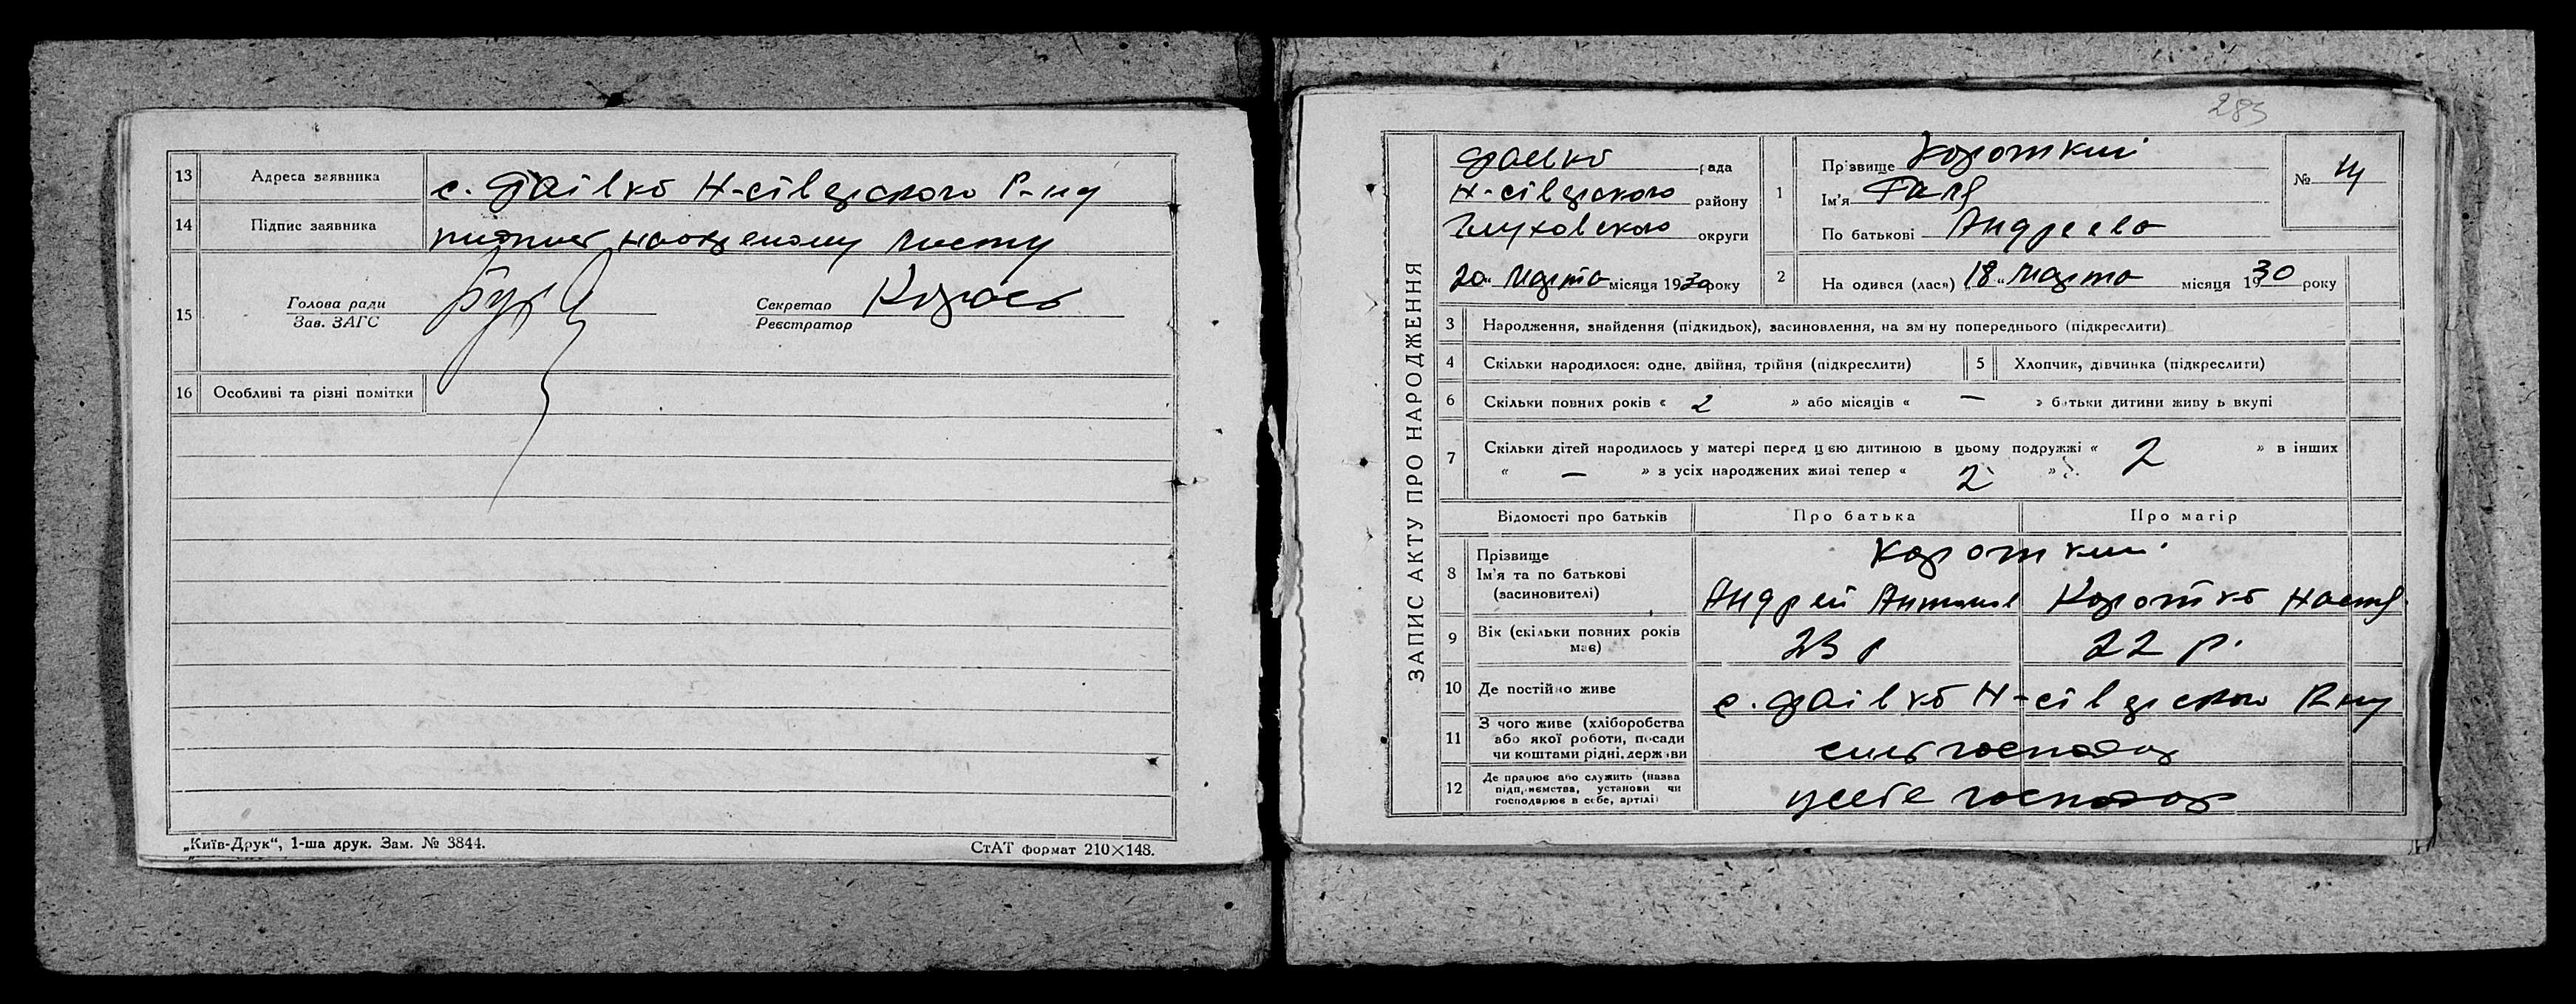 13 Адреса заявника с. Фаівко Н-сіверского Р-ну
14 Підпис заявника
15 Голова ради
Зав. ЗАГС
Секретар
Реєстратор
16 Особливі та різні помітки
„Київ-Друк“, 1-ша друк. Зам. № 3844. СтАТ формат 210×148.
283
ЗАПИС АКТУ ПРО НАРОДЖЕННЯ
рада
Н-сіверского району
Глуховского округи
20 Марта місяця 1930 року
1 Прізвище Короткий
Ім'я Галя
По батькові Андреева
№ 14
2 На одився (лась) „18“ Марта місяця 1930 року
3 Народження, знайдення (підкидьок), засиновлення, на зм ну попереднього (підкреслити)
4 Скільки народилося: одне, двійня, трійня (підкреслити) 5 Хлопчик, дівчинка (підкреслити)
6 Скільки повних років « 2 » або місяців « — » б тьки дитини живу ь вкупі
7 Скільки дітей народилось у матері перед цією дитиною в цьому подружжі « 2 » в інших
« — » з усіх народжених живі тепер « 2 »
Відомості про батьків Про батька Про матір
8 Прізвище Короткий
Ім'я та по батькові
(засиновителі) Андрей Антонов Коротко Настя
9 Вік (скільки повних років
має) 23 р 22 р.
10 Де постійно живе с. Фаівко Н-сіверского Р-ну
11 З чого живе (хліборобства
або якої роботи, посади
чи коштами рідні, держави
сильгосподар
12 Де працює або служить (назва
підприємства, установи чи
господарює в себе, артілі)
усебе господар